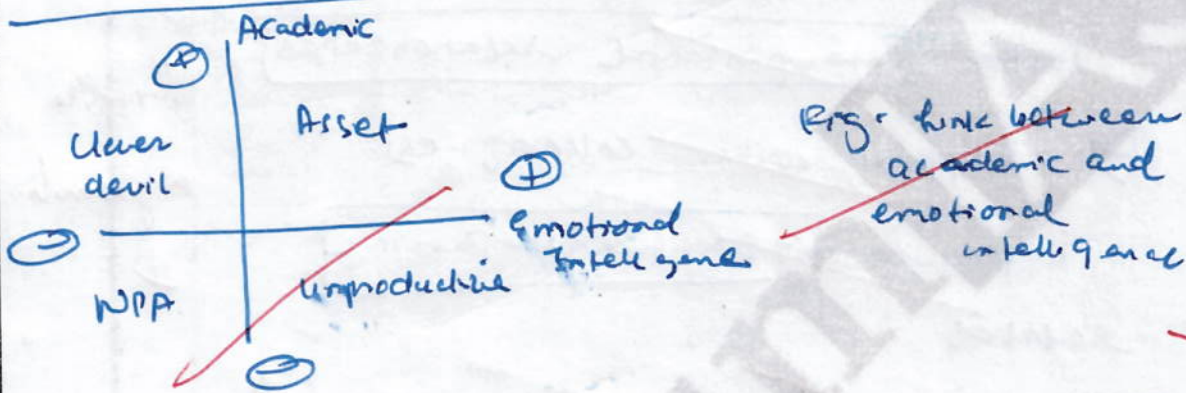 Academic
+
Clever
devil
Asset
+
Emotional
Intelligence
-
NPA
unproductive
-
Fig: Link between
academic and
emotional
intelligence